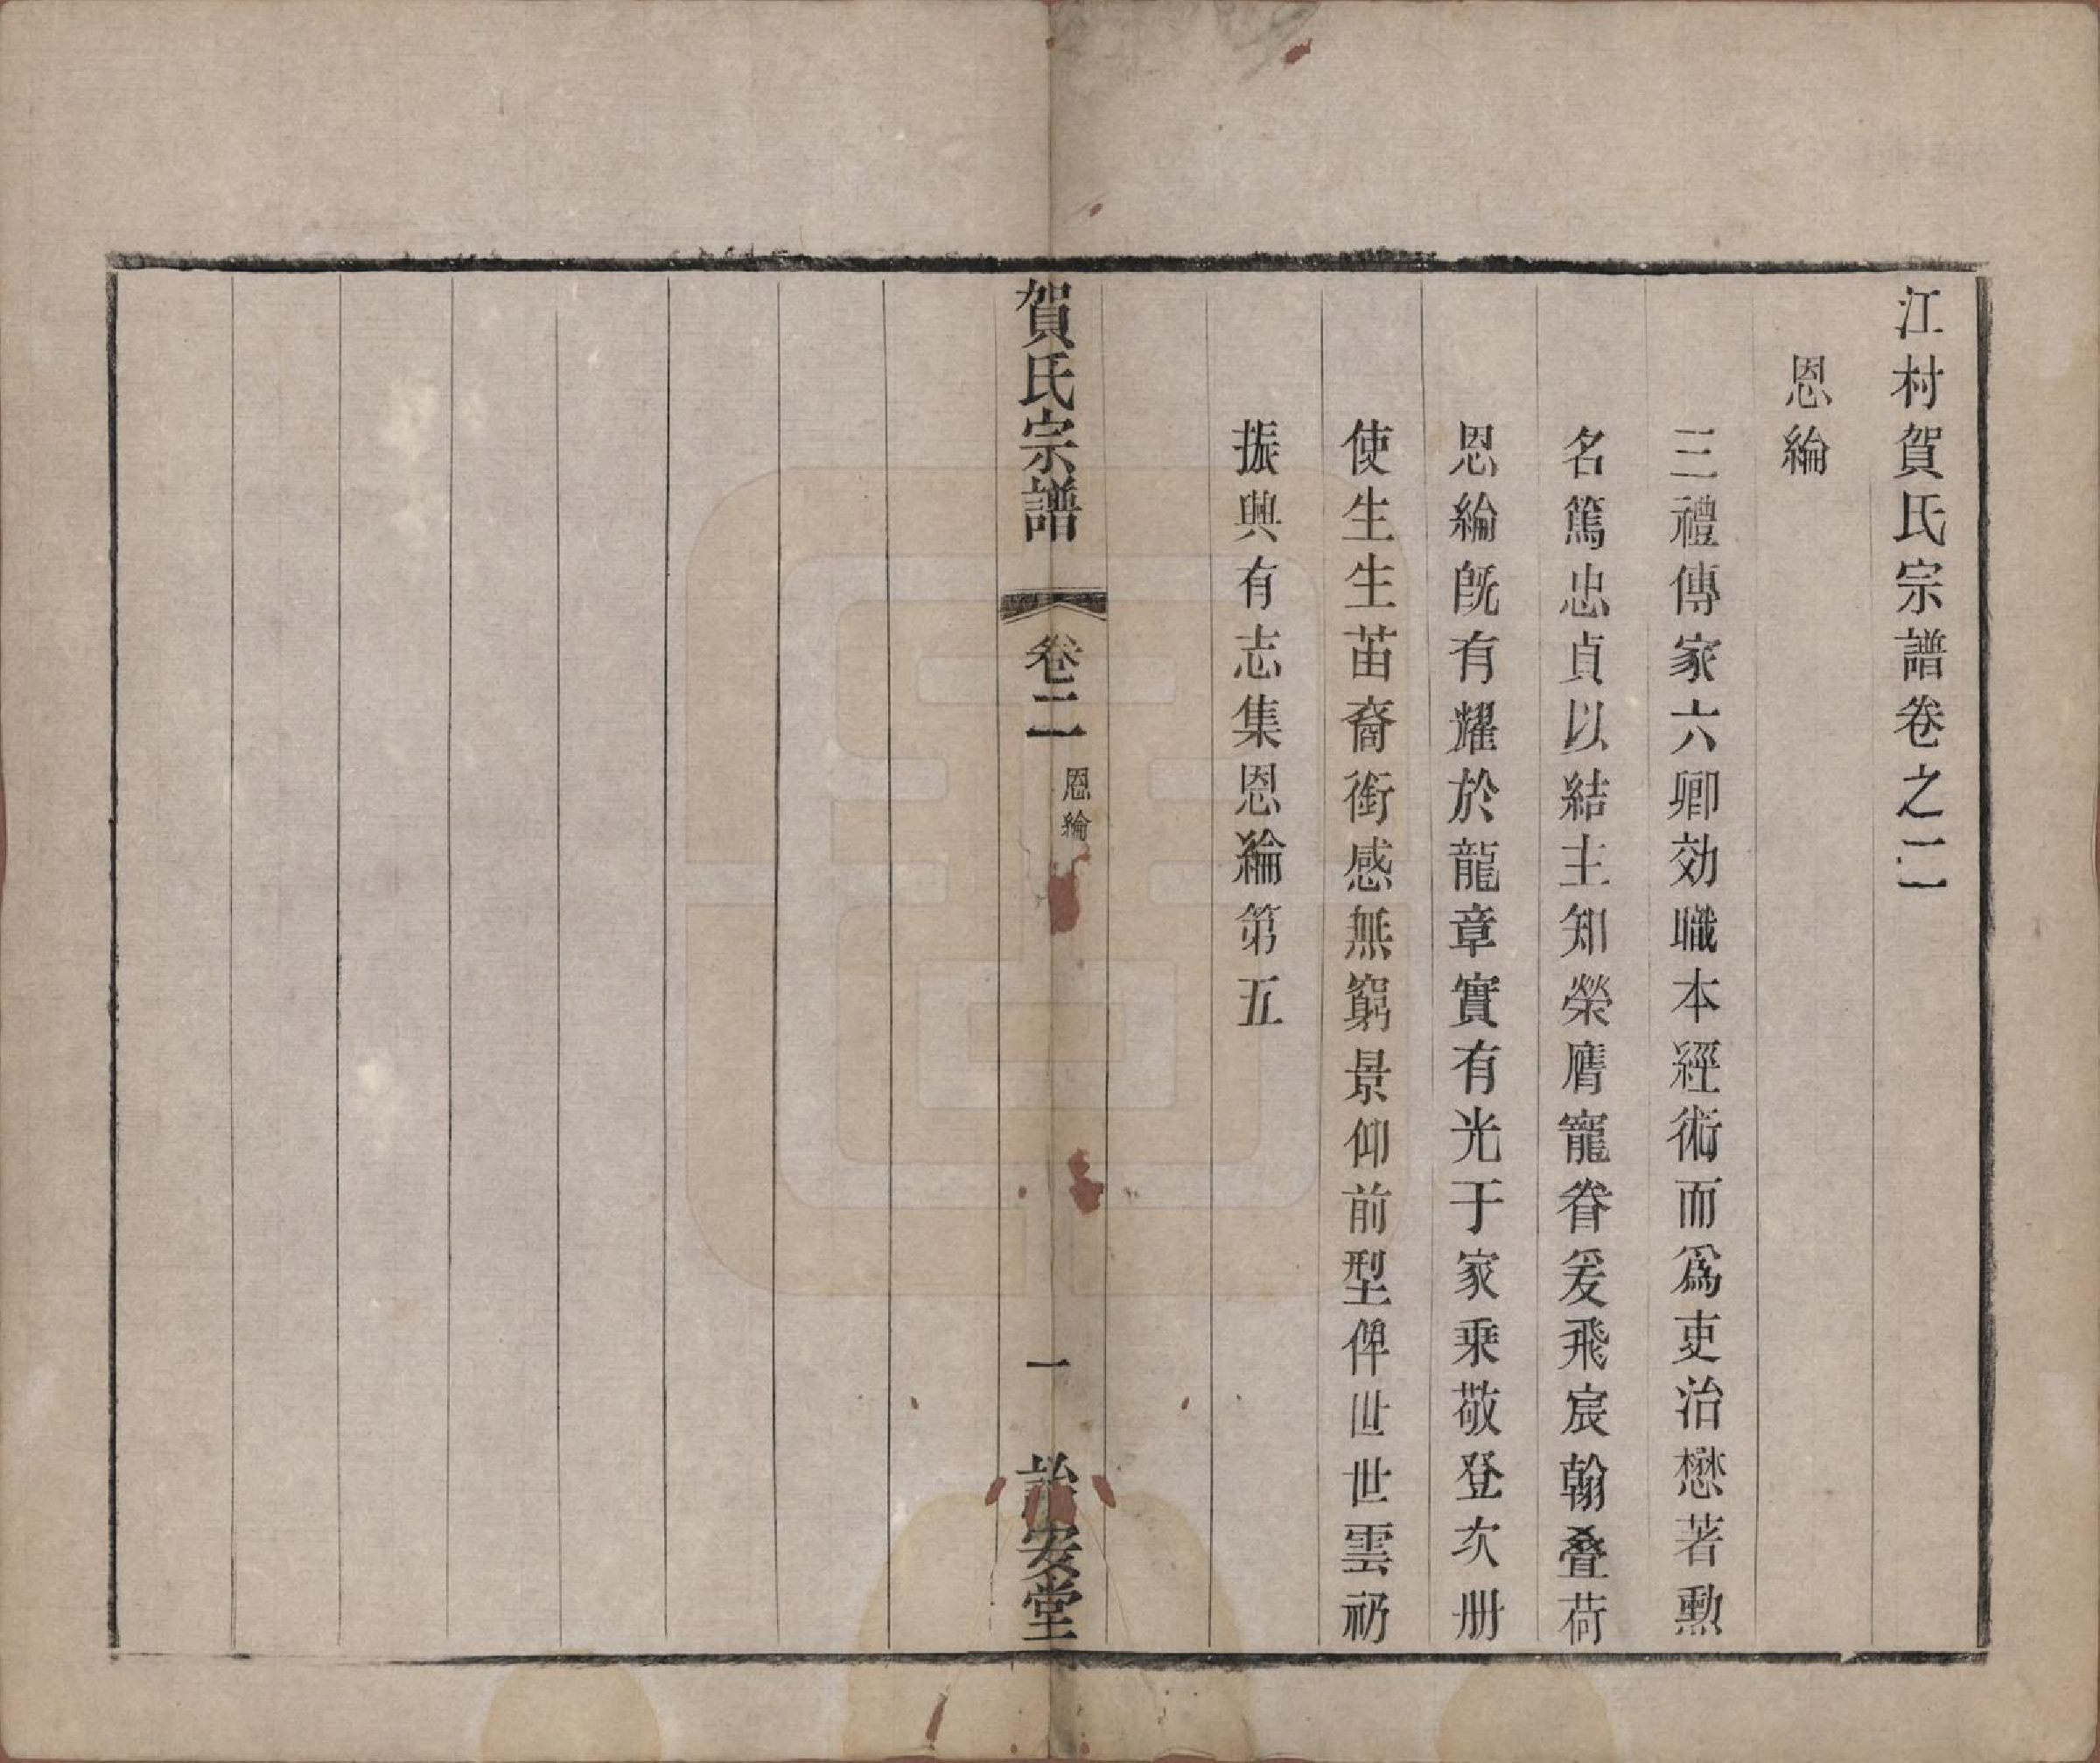 江村賀氏宗譜卷之二
恩綸
三禮傳家六卿効職本經術而爲吏治懋著勲
名篤忠貞以結主知榮膺寵眷爰飛宸翰叠荷
恩綸旣有耀於龍章實有光于家乗敬登次册
使生生苗裔銜感無窮景仰前型俾世世雲礽
振興有志集恩綸第五
賀氏宗譜
卷二
恩綸
一
詒安堂